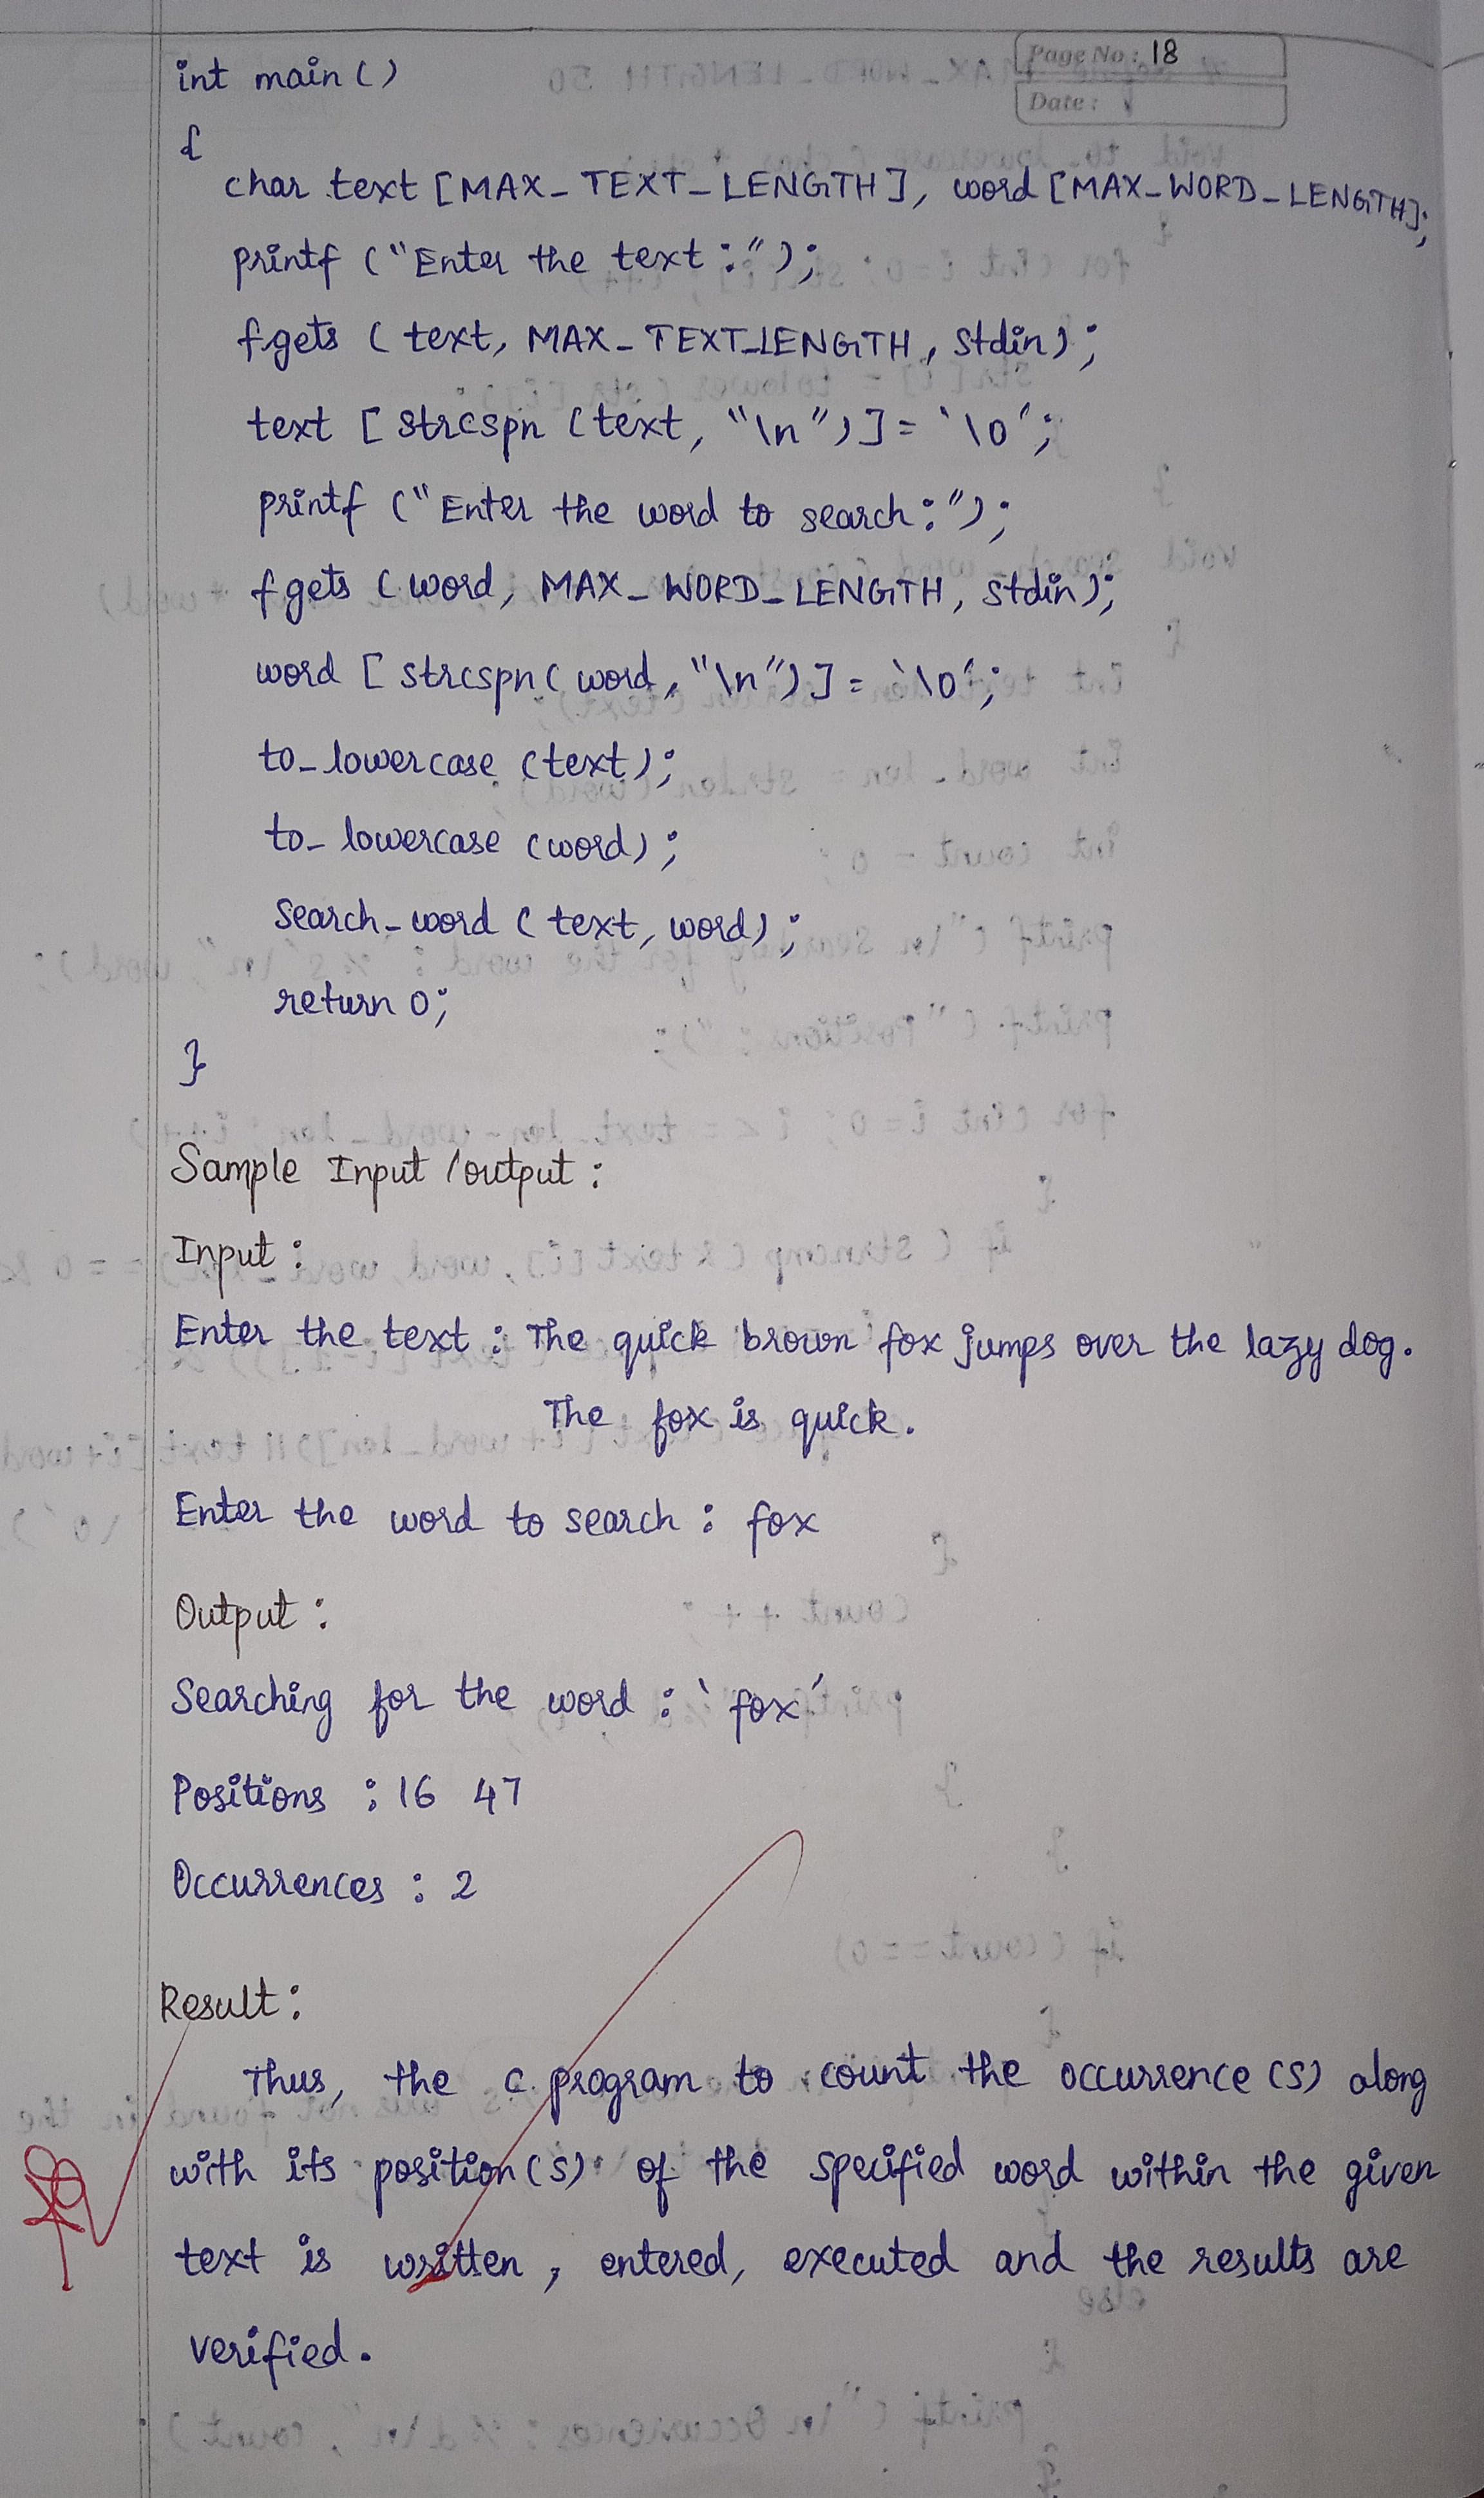 Page No: 18
Date:
int main ()
{
char text [MAX_TEXT_LENGTH], word [MAX_WORD_LENGTH];
printf ("Enter the text:");
fgets (text, MAX_TEXT_LENGTH, stdin);
text [strcspn (text, "\n")] = '\0';
printf ("Enter the word to search:");
fgets (word, MAX_WORD_LENGTH, stdin);
word [strcspn (word, "\n")] = '\0';
to_lowercase (text);
to_lowercase (word);
search_word (text, word);
return 0;
}
Sample Input/output:
Input:
Enter the text: The quick brown fox jumps over the lazy dog.
The fox is quick.
Enter the word to search: fox
Output:
Searching for the word: 'fox'
Positions: 16 47
Occurrences: 2
Result:
Thus, the c program to count the occurrence(s) along
with its position(s) of the specified word within the given
text is written, entered, executed and the results are
verified.